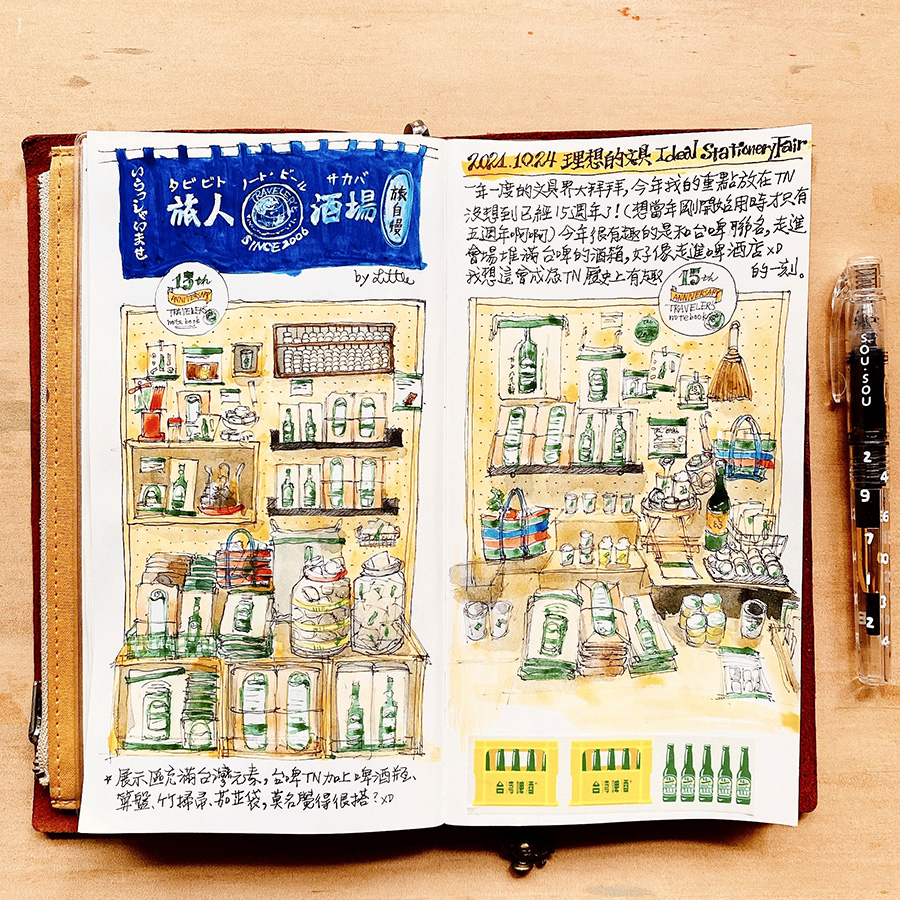 いらっしゃいませ
タビビト ノート・ビール サカバ
旅人 TRAVELER'S 酒場
SINCE 2006
旅自慢
by Little
15th
ANNIVERSARY
TRAVELERS
notebook
*展示區充滿台灣元素，台啤TN加上啤酒瓶、
算盤、竹掃帚、茄芷袋，莫名覺得很搭？XD
2021.10.24 理想的文具 Ideal Stationery Fair
一年一度的文具界大拜拜，今年我的重點放在TN
沒想到已經15週年了!(想當年剛開始用時才只有
五週年啊啊)今年很有趣的是和台啤聯名，走進
會場堆滿台啤的酒箱，好像走進啤酒店XD
我想這會成為TN歷史上有趣的一刻。
15th
ANNIVERSARY
TRAVELERS
notebook
台湾啤酒
台湾啤酒
SOU·SOU
2
4
9
7
8
1
3
2
4